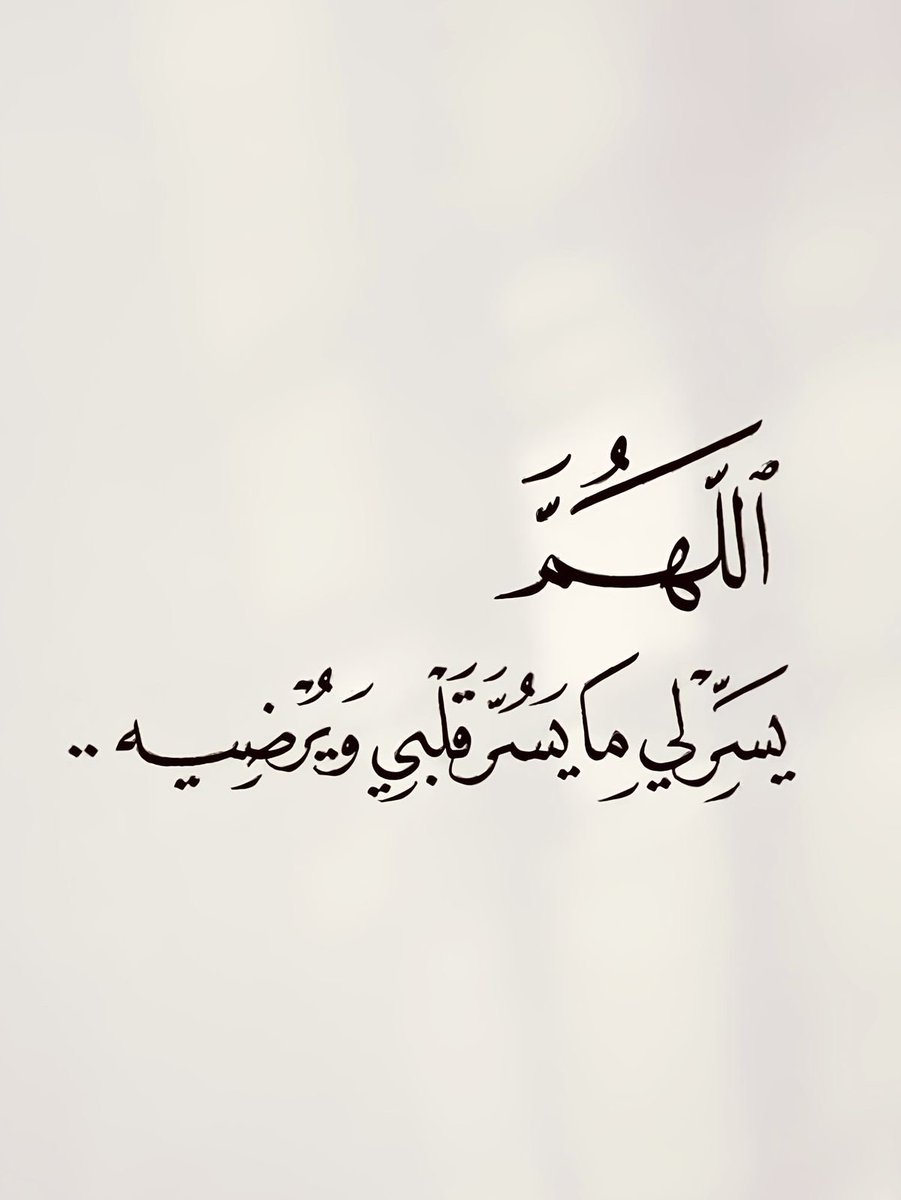 ٱللّٰهُمَّ
يَسِّرْ لِي مَا يَسُرَّ قَلْبِي وَيُرْضِيه ..